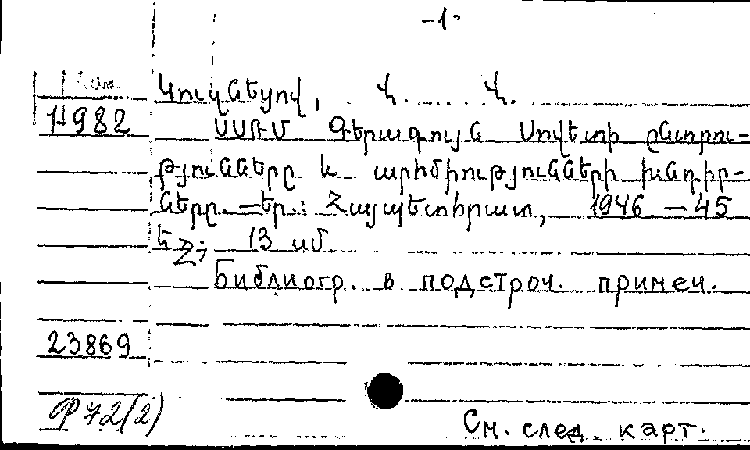 -1-
Կուզնեցով, Վ. Վ.
11982
ՍՍՌՄ Գերագույն Սովետի ընտրու-
թյունները և արհմիությունների խնդիր-
ները. — Եր.: Հայպետհրատ, 1946 — 45
եջ; 13 սմ
Библиогр. в подстроч. примеч.
23869
Ф 72(2)
См. след. карт.